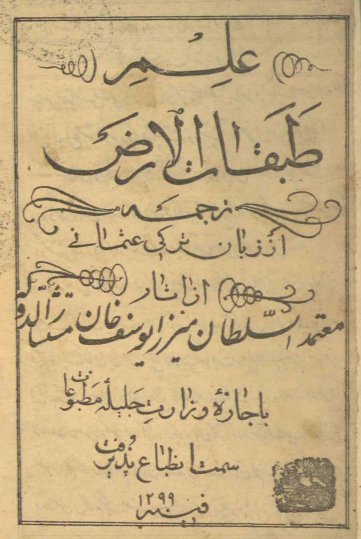 علم
طبقات الارض
ترجمه
از زبان ترکی عثمانی
از اثار
معتمد السلطان میرزا یوسف خان مستشار الدوله
باجازهٔ وزارت جلیلهٔ مطبوعات
سمت انطباع پذیرفت
فی سنه ۱۲۹۹